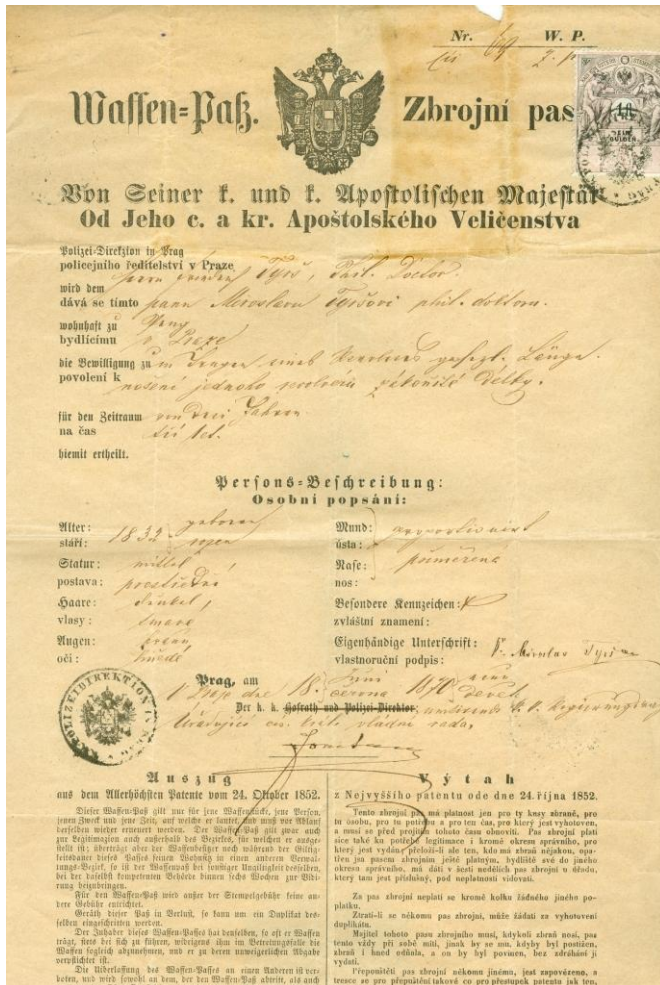 Nr. 69 W. P.
Waffen=Paß. Zbrojní pas
Von Seiner k. und k. Apostolischen Majestät
Od Jeho c. a kr. Apoštolského Veličenstva
Polizei-Direkzion in Prag
policejního ředitelství v Praze
wird dem
dává se tímto panu Miroslavu Tyršovi phil. doktoru.
wohnhaft zu Prag
bydlícímu v Praze
die Bewilligung zum Tragen eines Revolvers
povolení k nošení jednoho revolveru zákonité délky.
für den Zeitraum von drei Jahren
na čas tří let.
hiemit ertheilt.
Persons=Beschreibung:
Osobní popsání:
Alter: 1832 geboren
stáří:
Statur: mittel
postava: prostřední
Haare: dunkel,
vlasy: tmavé
Augen: braun
oči: hnědé
Mund: proportionirt
ústa:
Nase: přiměřená
nos:
Besondere Kennzeichen:
zvláštní znamení:
Eigenhändige Unterschrift:
vlastnoruční podpis:
Prag, am 18. Juni
V Praze dne 18. června 1870
Der k. k. Hofrath und Polizei-Direktor:
K. K. POLIZEIDIREKTION IN PRAG
Auszug
aus dem Allerhöchsten Patente vom 24. Oktober 1852.
Dieser Waffen-Paß gilt nur für jene Waffenstücke, jene Person,
jenen Zweck und jene Zeit, auf welche er lautet, und muß vor Ablauf
derselben wieder erneuert werden. Der Waffen-Paß gilt zwar auch
zur Legitimazion auch außerhalb des Bezirkes, für welchen er ausge-
stellt ist; überträgt aber der Waffenbesitzer noch während der Giltig-
keitsdauer dieses Passes seinen Wohnsitz in einen anderen Verwal-
tungs-Bezirk, so ist der Waffenpaß bei sonstiger Ungiltigkeit desselben,
bei der daselbst kompetenten Behörde binnen sechs Wochen zur Vidi-
rung beizubringen.
Für den Waffen-Paß wird außer der Stempelgebühr keine an-
dere Gebühr entrichtet.
Geräth dieser Paß in Verlust, so kann um ein Duplikat des-
selben eingeschritten werden.
Der Inhaber dieses Waffen-Passes hat denselben, so oft er Waffen
trägt, stets bei sich zu führen, widrigens ihm im Betretungsfalle die
Waffen sogleich abzunehmen, und er zu deren unweigerlichen Abgabe
verpflichtet ist.
Die Überlassung des Waffen-Passes an einen Anderen ist ver-
boten, und wird sowohl an dem, der den Waffen-Paß abtritt, als auch
Výtah
z Nejvyššího patentu ode dne 24. října 1852.
Tento zbrojní pas má platnost jen pro ty kusy zbraně, pro
tu osobu, pro tu potřebu a pro ten čas, pro který jest vyhotoven,
a musí se před projitím tohoto času obnoviti. Pas zbrojní platí
sice také ku potřebě legitimace i kromě okresu správního, pro
který jest vydán; přeloží-li ale ten, kdo má zbraň nějakou, opa-
třen jsa pasem zbrojním ještě platným, bydliště své do jiného
okresu správního, má dáti v šesti nedělích pas zbrojní u úřadu,
který tam jest příslušný, pod neplatností vidovati.
Za pas zbrojní neplatí se kromě kolku žádného jiného po-
platku.
Ztratí-li se někomu pas zbrojní, může žádati za vyhotovení
duplikátu.
Majitel tohoto pasu zbrojního musí, kdykoli zbraň nosí, pas
tento vždy při sobě míti, jinak by se mu, kdyby byl postižen,
zbraň i hned odňala, a on by byl povinen, bez zdráhání ji
vydati.
Přepouštěti pas zbrojní někomu jinému, jest zapovězeno, a
tresce se pro přepuštění takové co pro přestupek patentu jak ten,